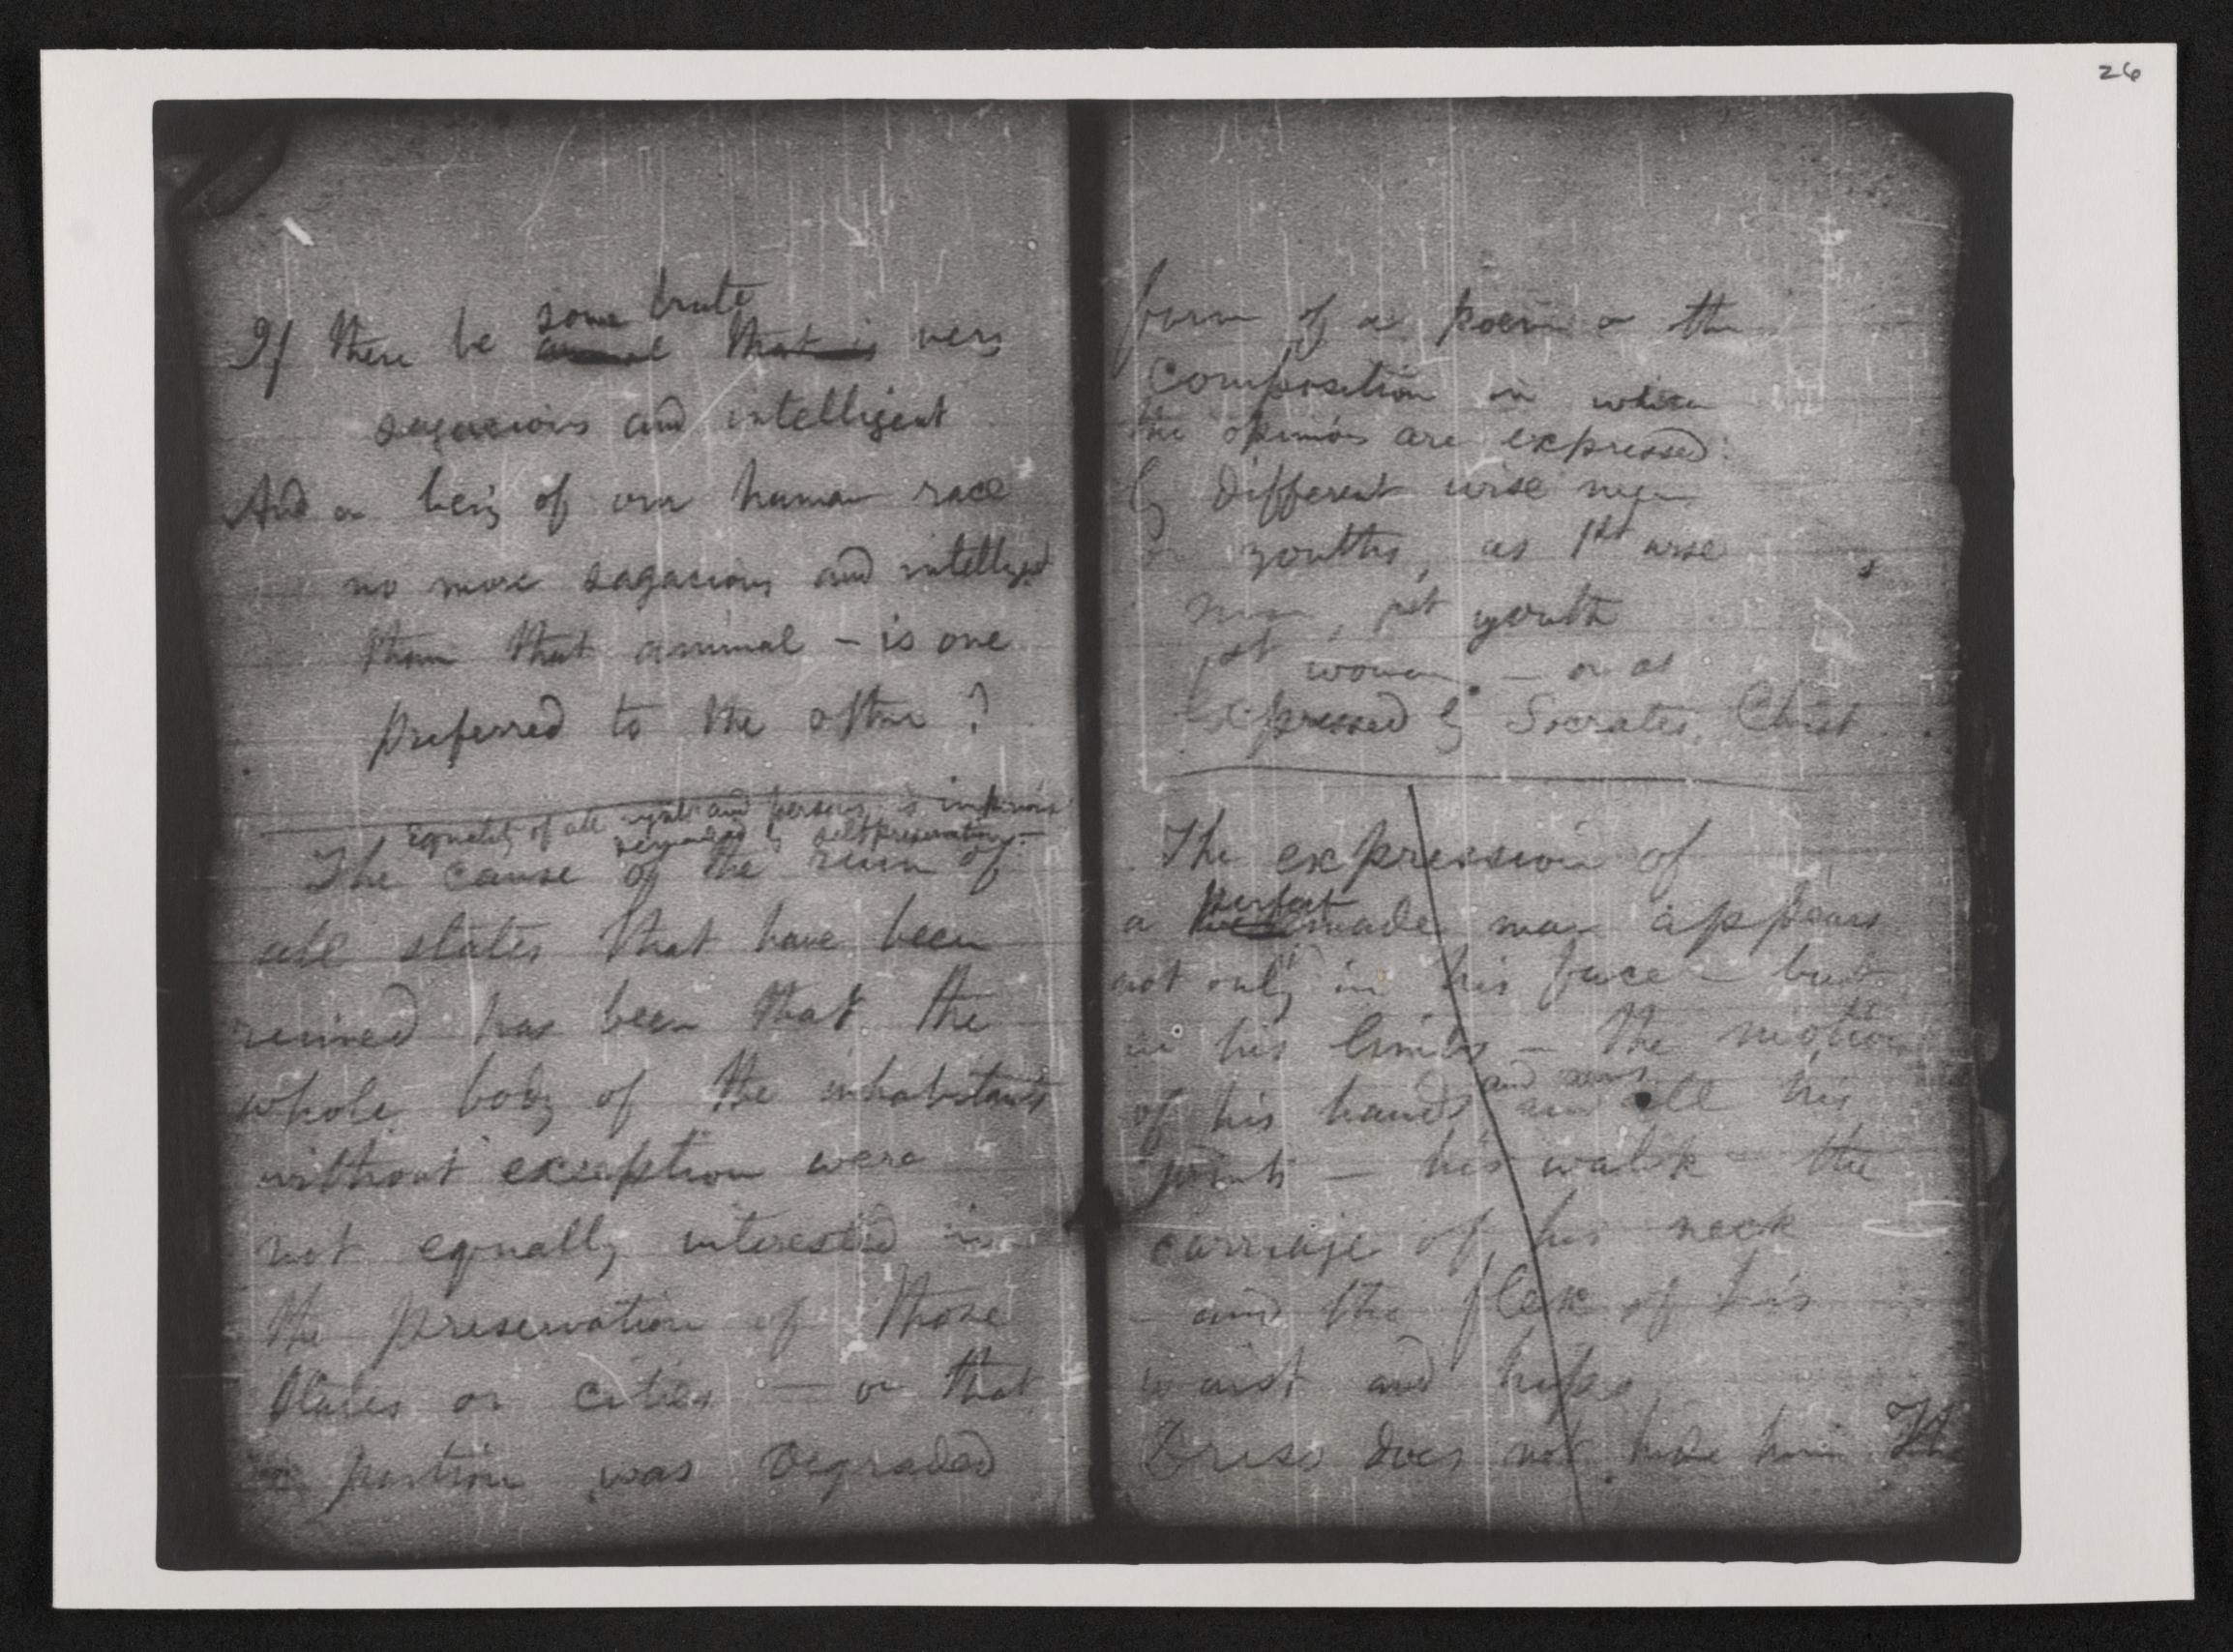 26
some brute
If there be animal that is very
sagacious and intelligent
And a being of our human race
no more sagacious and intelligent
than that animal – is one
preferred to the other?
equality of all rights and persons is imperious
demanded by self preservation –
The cause of the ruin of
all states that have been
ruined has been that the
whole body of the inhabitants
without exception were
not equally interested in
the preservation of those
states or cities — or that
portion was degraded
form of a poem or other
composition in which
the opinions are expressed
by different wise men
or youths, as 1st wise
man, 1st youth
1st woman – or as
expressed by Socrates, Christ
The expression of
perfect
a made man appears
not only in his face – but
in his limbs – the motion
and arms
of his hands and all his
joints – his walk – the
carriage of his neck
– and the flex of his
waist and hips
Dress does not hide him The